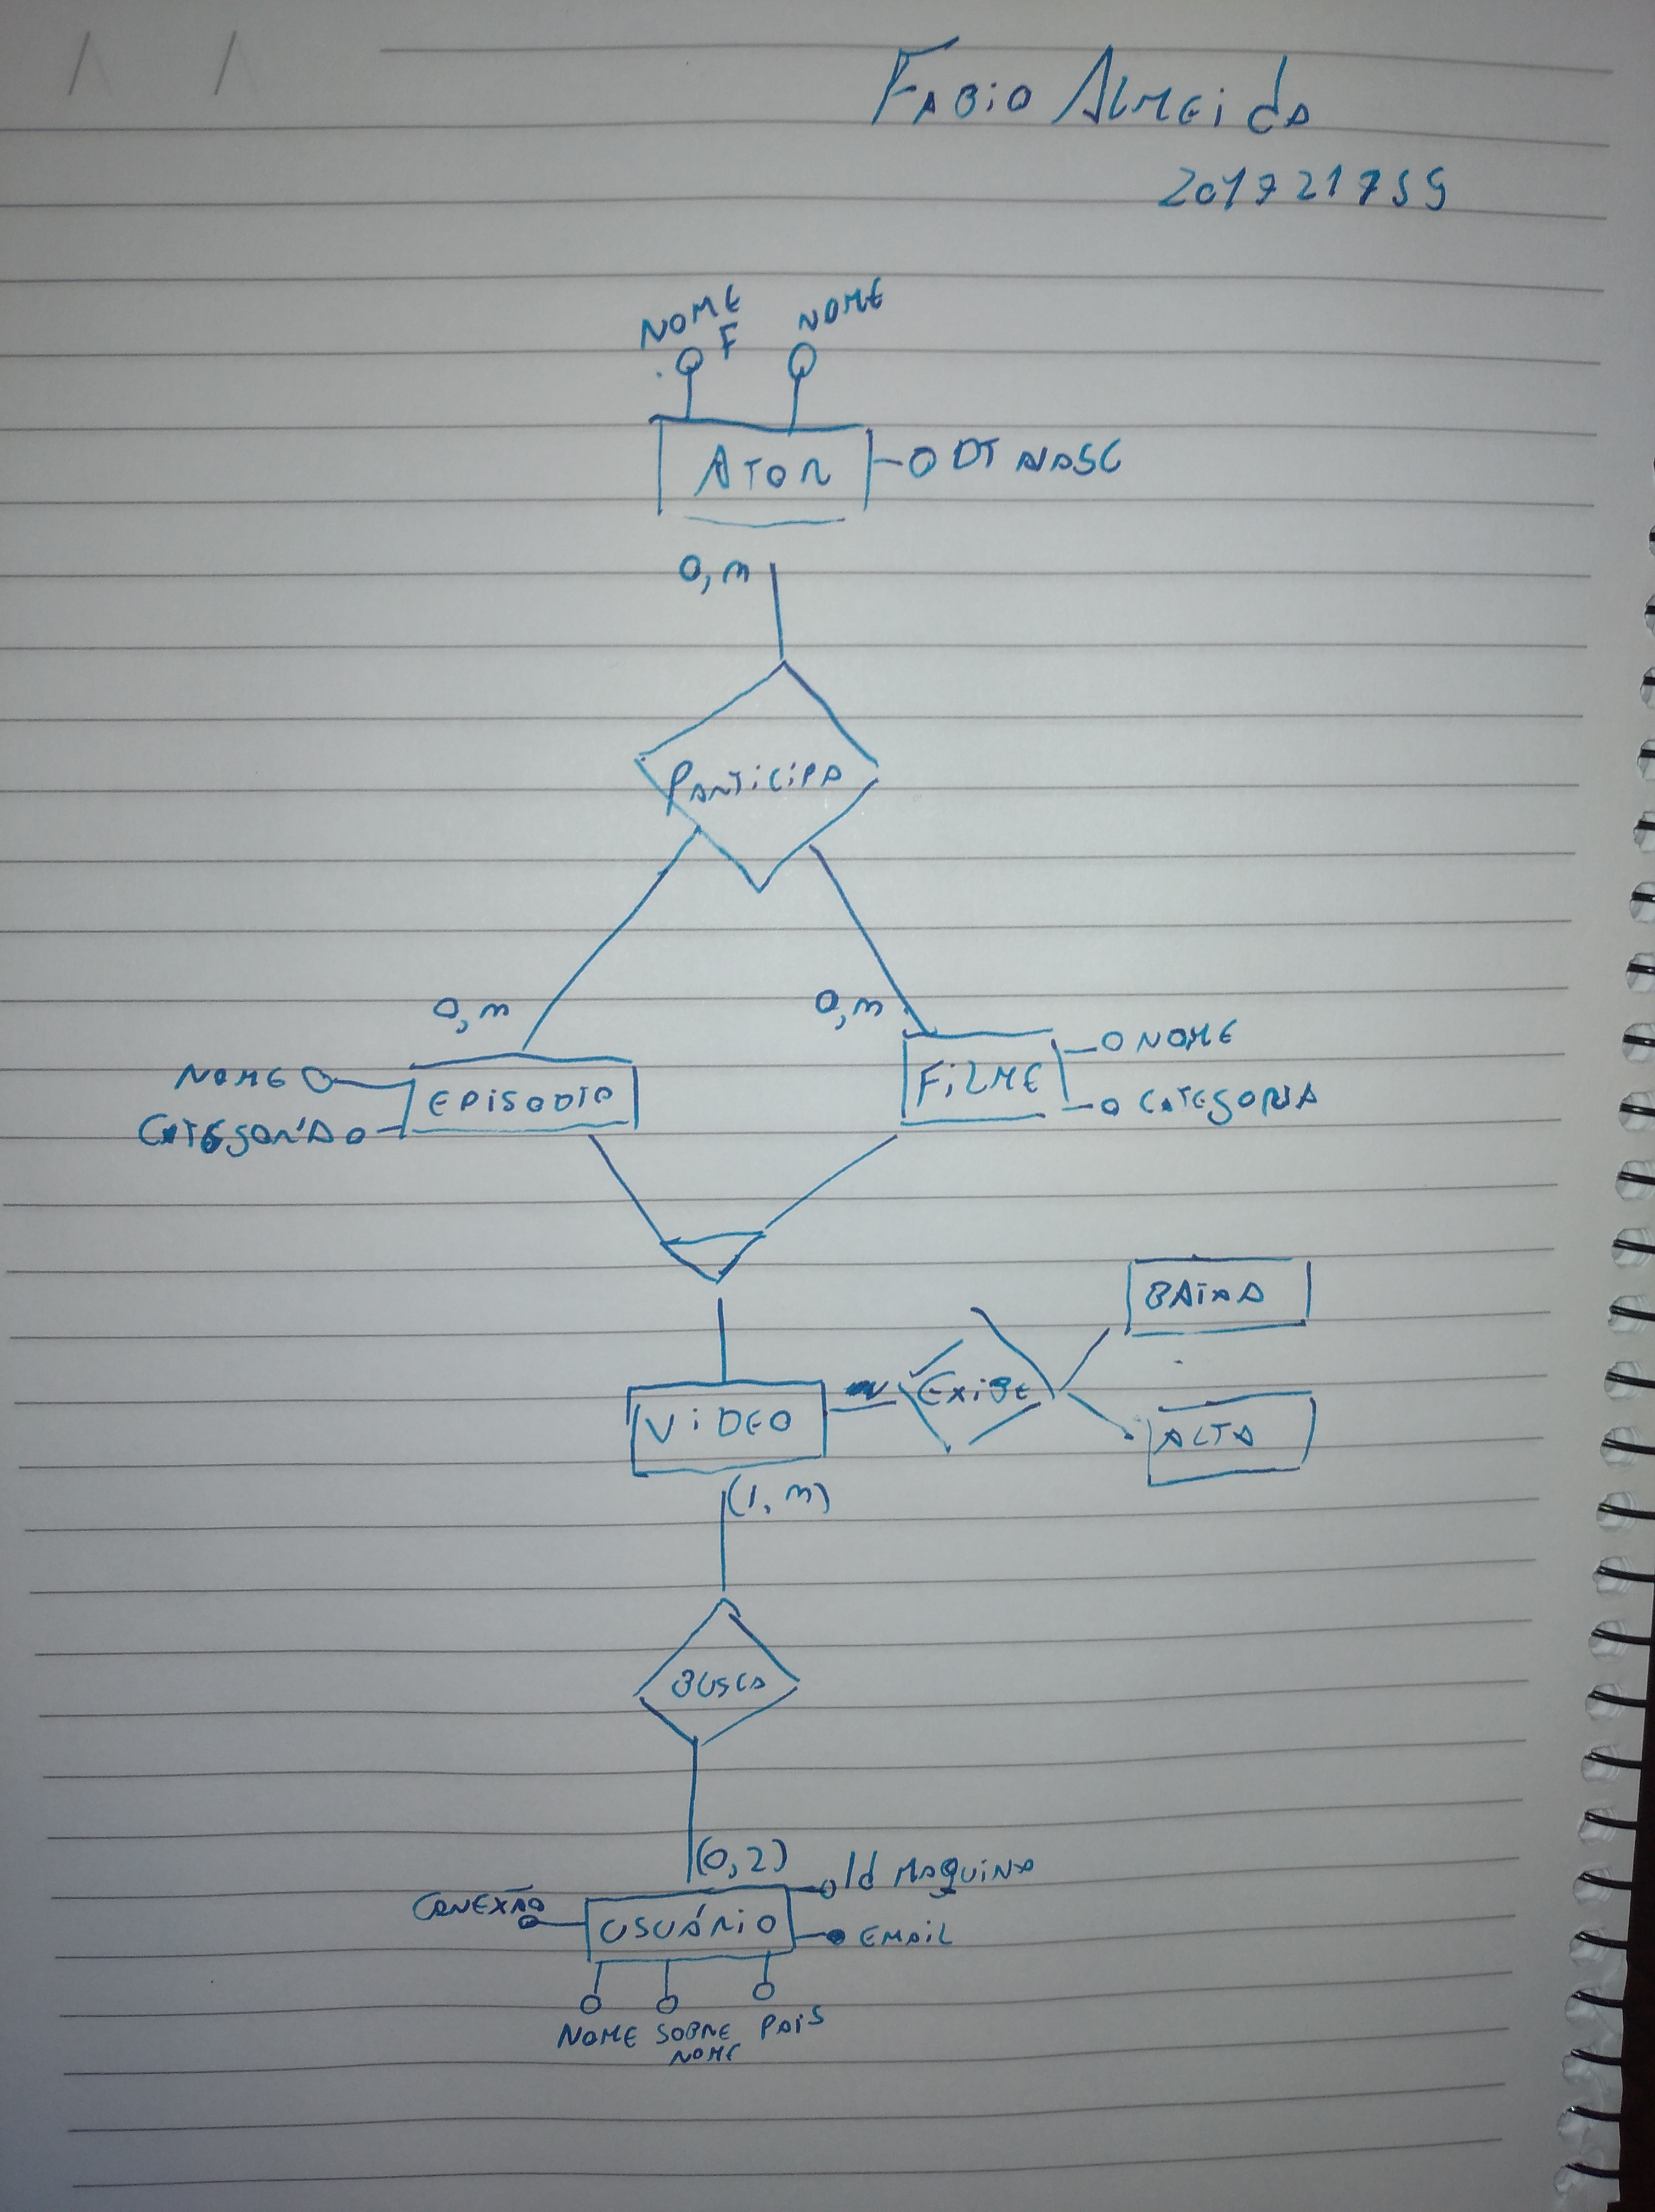 FABIO ALMEIDA
201721759
NOME F
NOME
ATOR
DT NASC
0,n
PARTICIPA
0,n
0,n
NOME
EPISODIO
CATEGORIA
FILME
NOME
CATEGORIA
BAIXA
VIDEO
EXIBE
ALTA
(1,n)
BUSCA
(0,2)
Id MAQUINA
CONEXÃO
USUÁRIO
EMAIL
NOME
SOBRE
NOME
PAIS